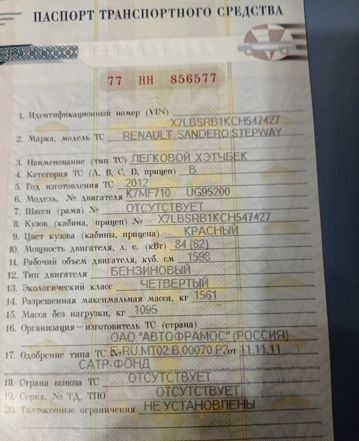 ПАСПОРТ ТРАНСПОРТНОГО СРЕДСТВА
77 НН 856577
1. Идентификационный номер (VIN) X7LBSRB1KCH547427
2. Марка, модель ТС RENAULT SANDERO STEPWAY
3. Наименование (тип ТС) ЛЕГКОВОЙ ХЭТЧБЕК
4. Категория ТС (A, B, C, D, прицеп) B
5. Год изготовления ТС 2012
6. Модель, № двигателя K7MF710 UG95200
7. Шасси (рама) № ОТСУТСТВУЕТ
8. Кузов (кабина, прицеп) № X7LBSRB1KCH547427
9. Цвет кузова (кабины, прицепа) КРАСНЫЙ
10. Мощность двигателя, л. с. (кВт) 84 (62)
11. Рабочий объем двигателя, куб. см 1598
12. Тип двигателя БЕНЗИНОВЫЙ
13. Экологический класс ЧЕТВЕРТЫЙ
14. Разрешенная максимальная масса, кг 1561
15. Масса без нагрузки, кг 1095
16. Организация – изготовитель ТС (страна)
ОАО "АВТОФРАМОС" (РОССИЯ)
17. Одобрение типа ТС № RU.MT02.B.00070.P2 от 11.11.11
САТР-ФОНД
18. Страна вывоза ТС ОТСУТСТВУЕТ
19. Серия, № ТД, ТПО ОТСУТСТВУЕТ
20. Таможенные ограничения НЕ УСТАНОВЛЕНЫ